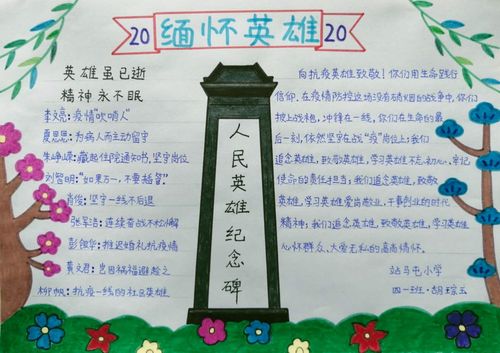 2020
缅怀英雄
英雄虽已逝
精神永不眠
李文亮：疫情“吹哨人”
夏思思：为病人而主动留守
朱峥嵘：藏起住院通知书，坚守岗位
刘智明：“如果万一，不要插管。”
肖俊：坚守一线不后退
张军浩：连续奋战不松懈
彭银华：推迟婚礼抗疫情
黄文君：岂因祸福避趋之
柳帆：抗疫一线的社区英雄
人民英雄纪念碑
向抗疫英雄致敬！你们用生命践行
信仰。在疫情防控这场没有硝烟的战争中，你们
披上战袍，冲锋在一线，你们在生命的最
后一刻，依然坚守在战“疫”岗位上；我们
追念英雄，致敬英雄，学习英雄不忘初心、牢记
使命的责任担当；我们追念英雄，致敬
英雄，学习英雄爱岗敬业、干事创业的时代
精神；我们追念英雄，致敬英雄，学习英雄
心怀群众、大爱无私的高尚情怀。
站马屯小学
四一班·胡琮玉